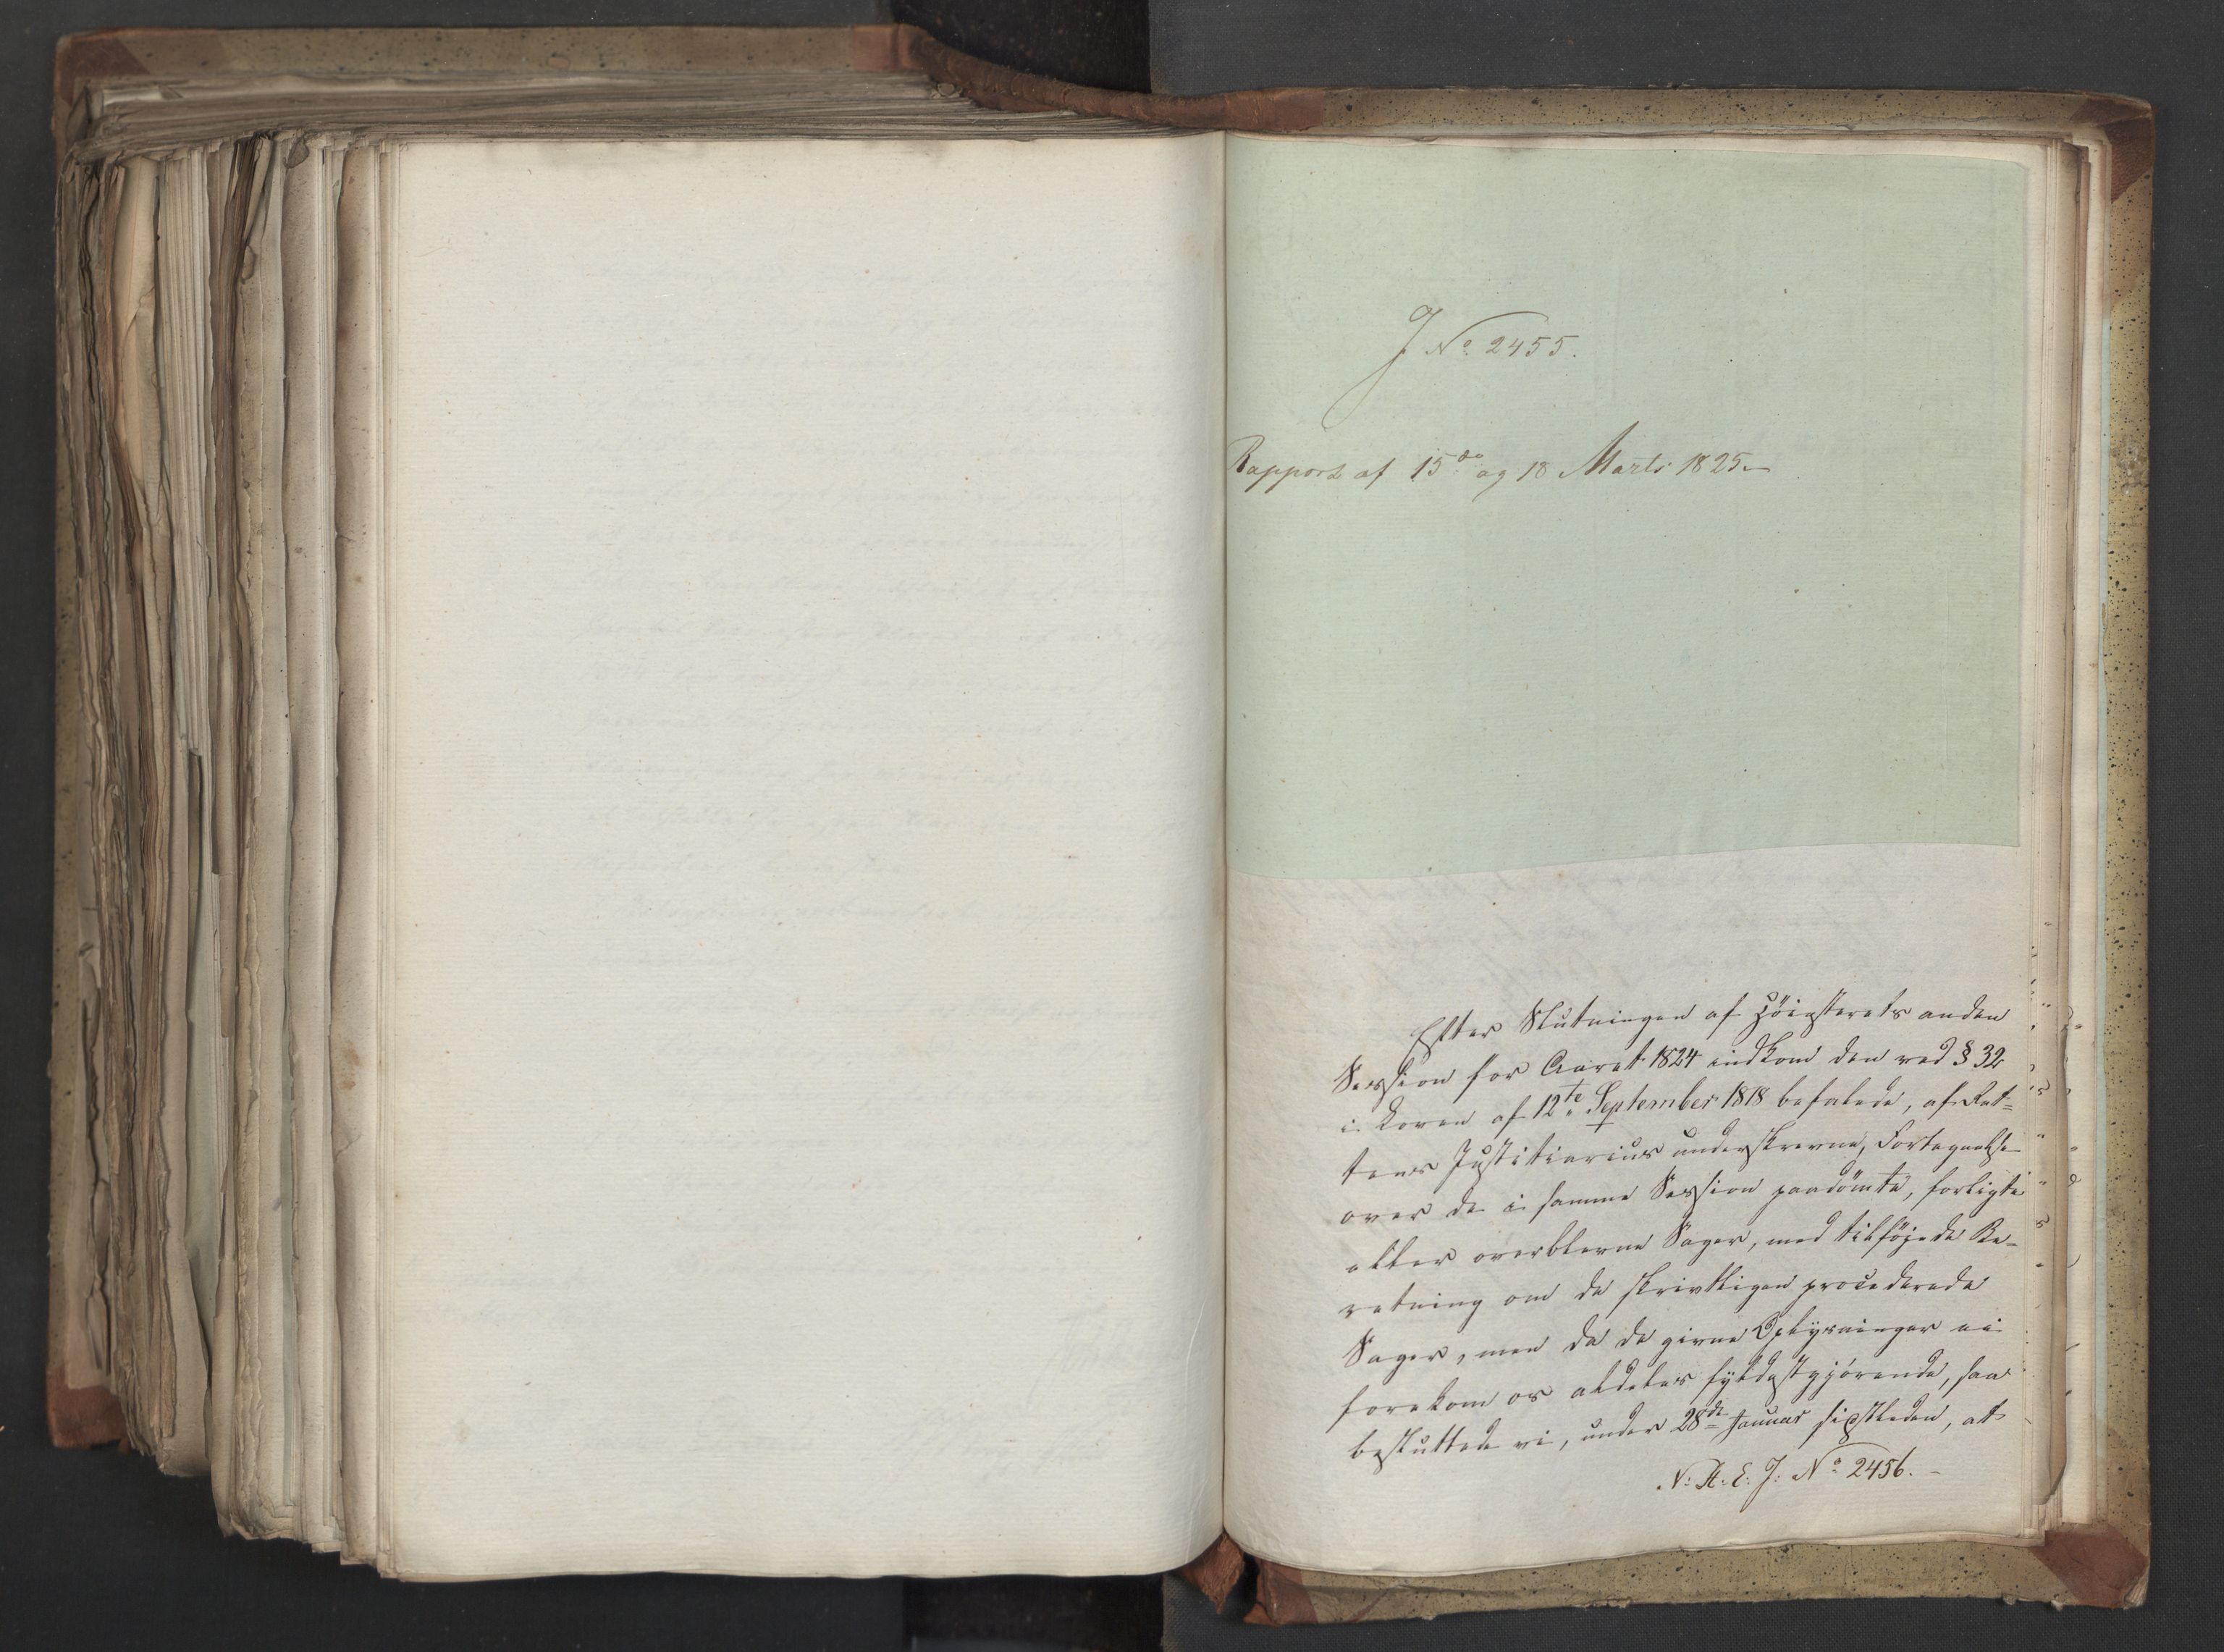 J No. 2455.
Rapport af 15de og 18 Marts 1825.
Efter Slutningen af Höiesterets anden
Session for Aaret 1824 indkom den ved § 32
i Loven af 12te September 1818 befalede, af Ret=
tens Justitiarius underskrevne, Fortegnelse
over de i samme Session paadömte, forligte
eller overblevne Sager, med tilföjede Be-
retning om de skrivtligen procederede
Sager, men da de givne Oplysninger ei
forekom os aldeles fyldestgjörende, saa
besluttede vi, under 28de Januar sidstleden, at
N: A: E: J: No 2456.